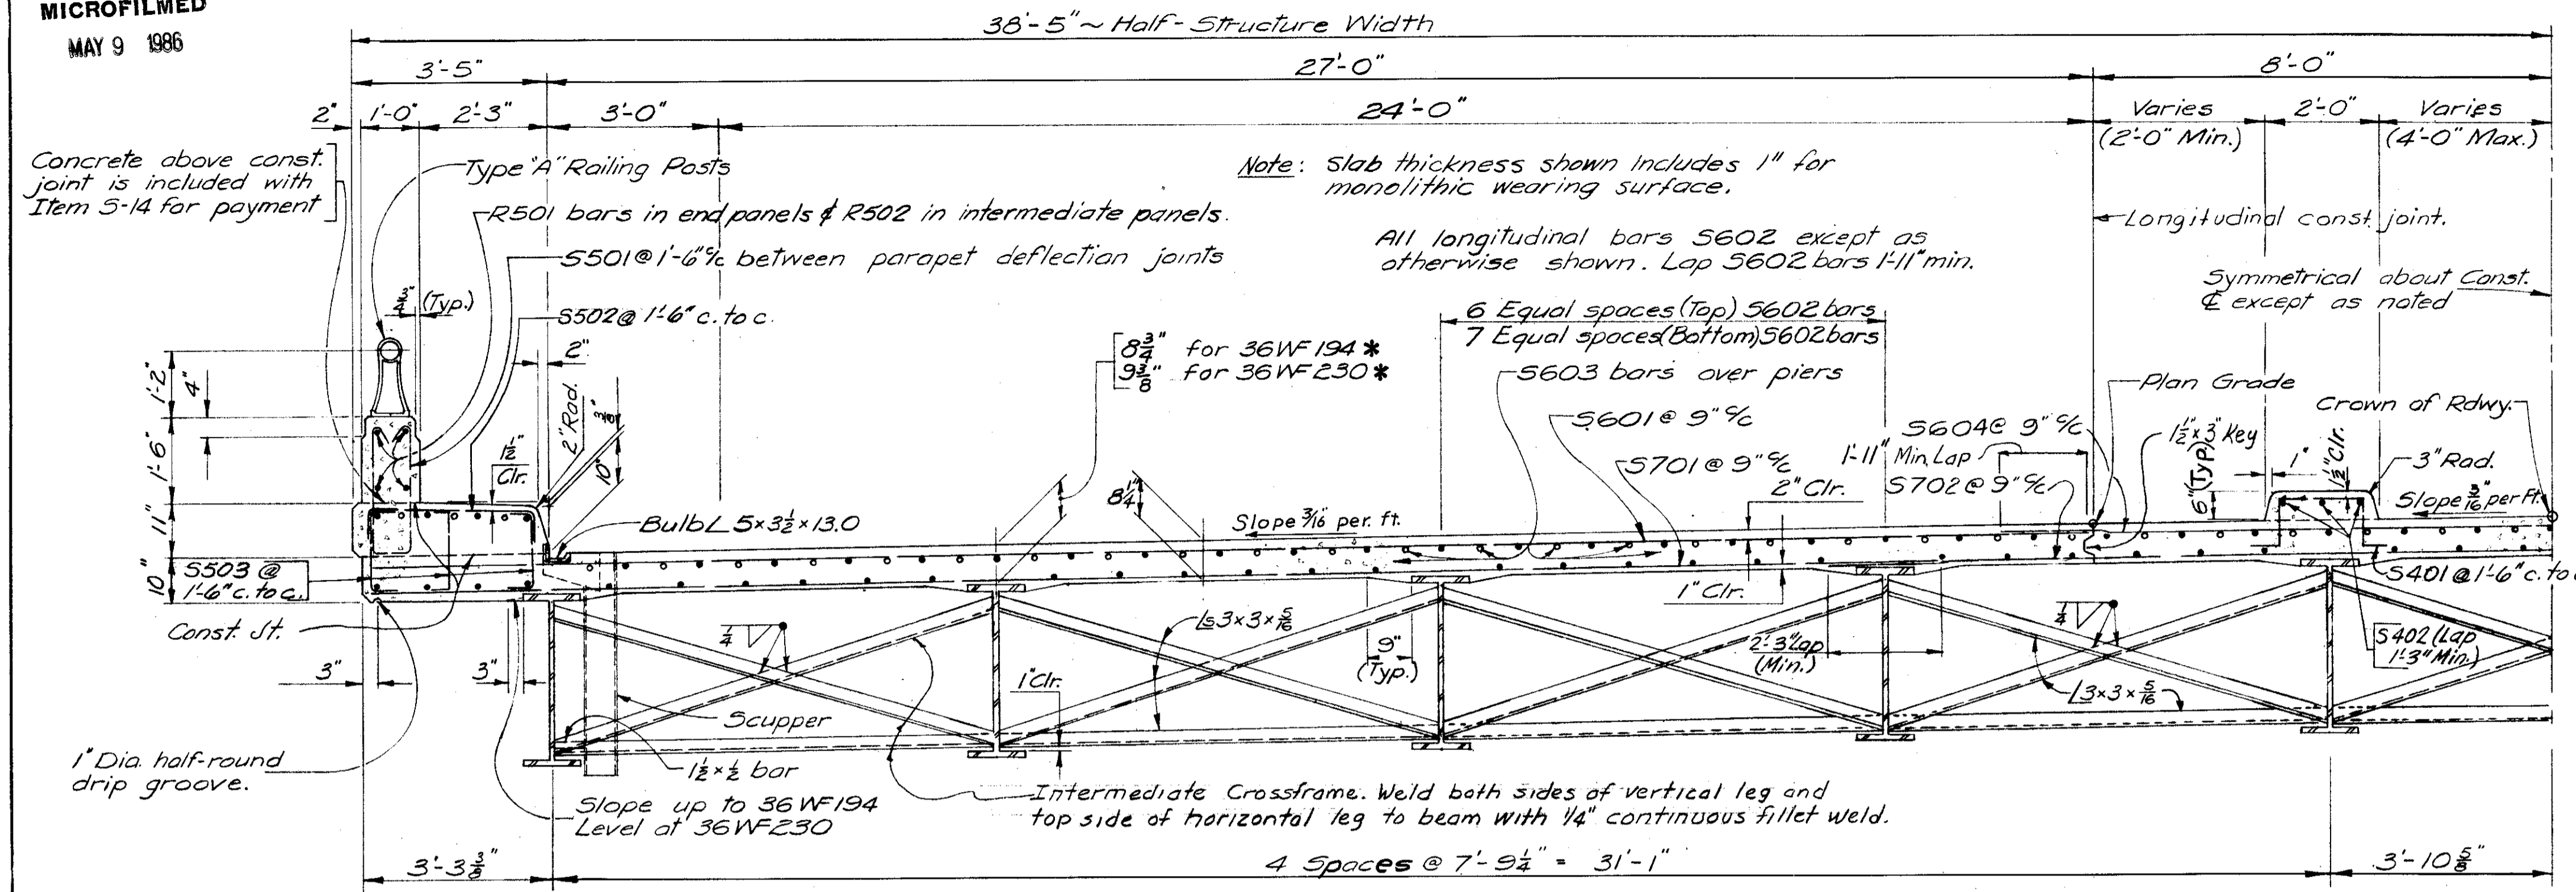 MICROFILMED
MAY 9 1986
38'-5" ~ Half-Structure Width
3'-5"
27'-0"
8'-0"
2"
1'-0"
2'-3"
3'-0"
24'-0"
Varies
(2'-0" Min.)
2'-0"
Varies
(4'-0" Max.)
Concrete above const.
joint is included with
Item S-14 for payment
Type "A" Railing Posts
R501 bars in end panels & R502 in intermediate panels.
S501 @ 1'-6" c/c between parapet deflection joints
3/4" (Typ.)
S502 @ 1'-6" c. to c.
2"
Note: Slab thickness shown includes 1" for
monolithic wearing surface.
All longitudinal bars S602 except as
otherwise shown. Lap S602 bars 1'-11" min.
Longitudinal const. joint.
Symmetrical about Const.
℄ except as noted
6 Equal spaces (Top) S602 bars
7 Equal spaces (Bottom) S602 bars
8 3/4" for 36WF194 *
9 3/8" for 36WF230 *
S603 bars over piers
S601 @ 9" c/c
S701 @ 9" c/c
2" Clr.
S604 @ 9" c/c
1'-11" Min. Lap
S702 @ 9" c/c
Plan Grade
Crown of Rdwy.
1 1/2" x 3" Key
6" (Typ.)
1"
1 1/2" Clr.
3" Rad.
Slope 3/16" per Ft.
1'-2"
4"
1'-6"
11"
10"
1 1/2"
Clr.
2" Rad.
10"
8 1/4"
Bulb L 5 x 3 1/2 x 13.0
Slope 3/16" per. ft.
S503 @
1'-6" c. to c.
Const. Jt.
1" Clr.
S401 @ 1'-6" c. to c
1/4
Ls 3 x 3 x 5/16
9"
(Typ.)
2'-3" Lap
(Min.)
1/4
S402 (Lap
1'-3" Min.)
L 3 x 3 x 5/16
3"
3"
1" Clr.
Scupper
1" Dia. half-round
drip groove.
1 1/2 x 1/2 bar
Slope up to 36WF194
Level at 36WF230
Intermediate Crossframe. Weld both sides of vertical leg and
top side of horizontal leg to beam with 1/4" continuous fillet weld.
3'-3 3/8"
4 Spaces @ 7'-9 1/4" = 31'-1"
3'-10 5/8"